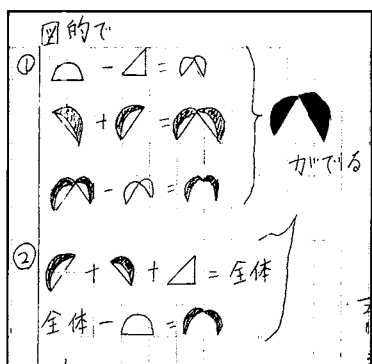 図的で
①
- =
+ =
- =
がでる
②
+ + = 全体
全体 - =